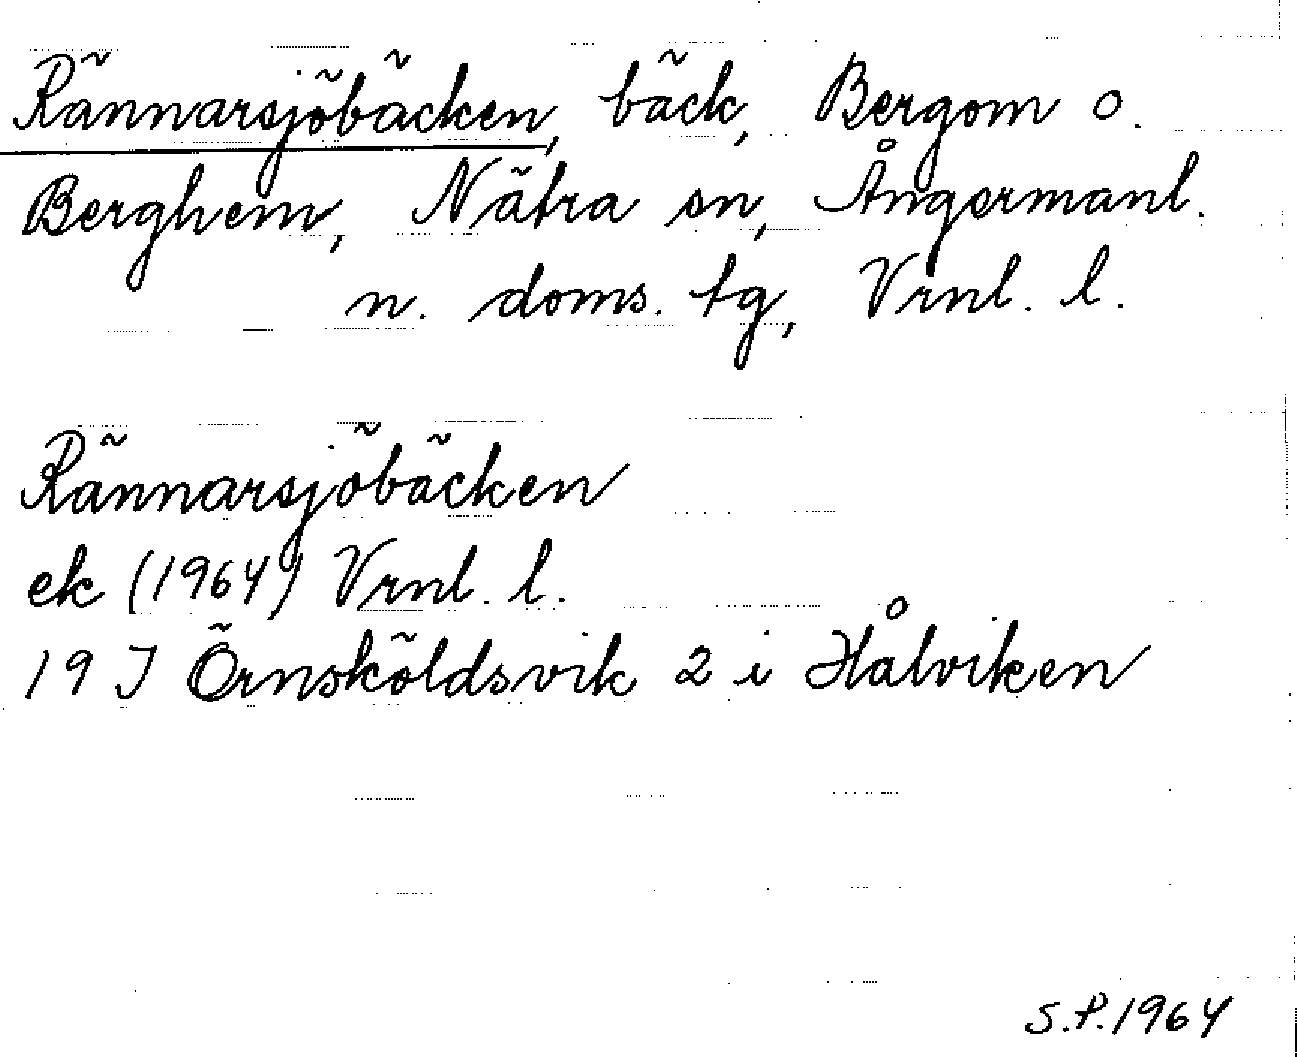 Rännarsjöbäcken, bäck, Bergom o.
Berghem, Nätra sn, Ångermanl.
n. doms. tg, Vrnl. l.
Rännarsjöbäcken
ek (1964) Vrnl. l.
19 J Örnsköldsvik 2 i Hålviken
S.P. 1964